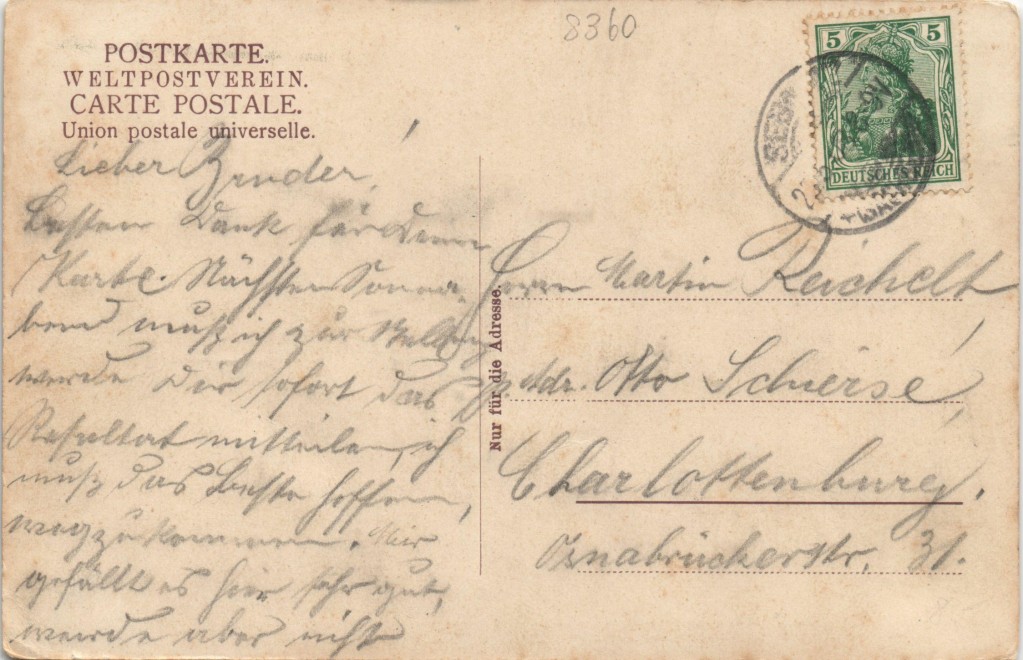 8360
POSTKARTE.
WELTPOSTVEREIN.
CARTE POSTALE.
Union postale universelle.
5 5
DEUTSCHES REICH
Lieber Bruder!
Besten Dank für Deine
Karte. Nächsten Sonna-
bend muß ich zur
werde Dir sofort das
Resultat mitteilen, ich
muß das Beste hoffen,
wegzukommen. Mir
gefällt es hier sehr gut,
werde aber nicht
Nur für die Adresse.
Herrn Martin Reichelt
p. Adr. Otto Schierse,
Charlottenburg,
Osnabrückerstr. 31.